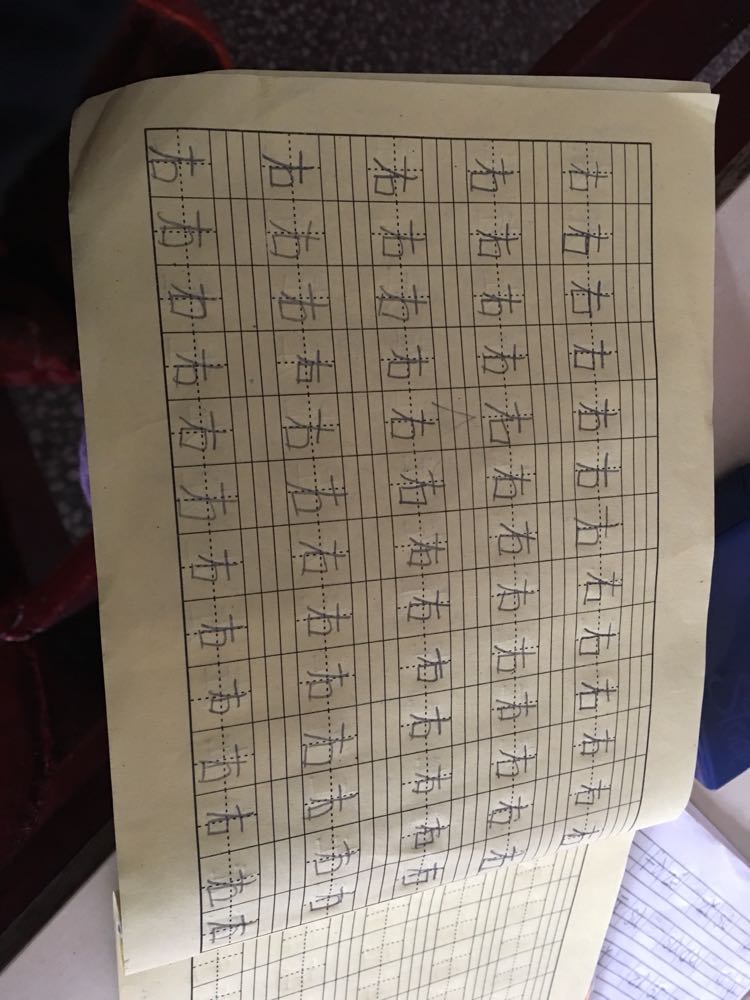 右右右右右右右右右右右右右
右右右右右右右右右右右右右
右右右右右右右右右右右右右
右右右右右右右右右右右右右
右右右右右右右右右右右右右